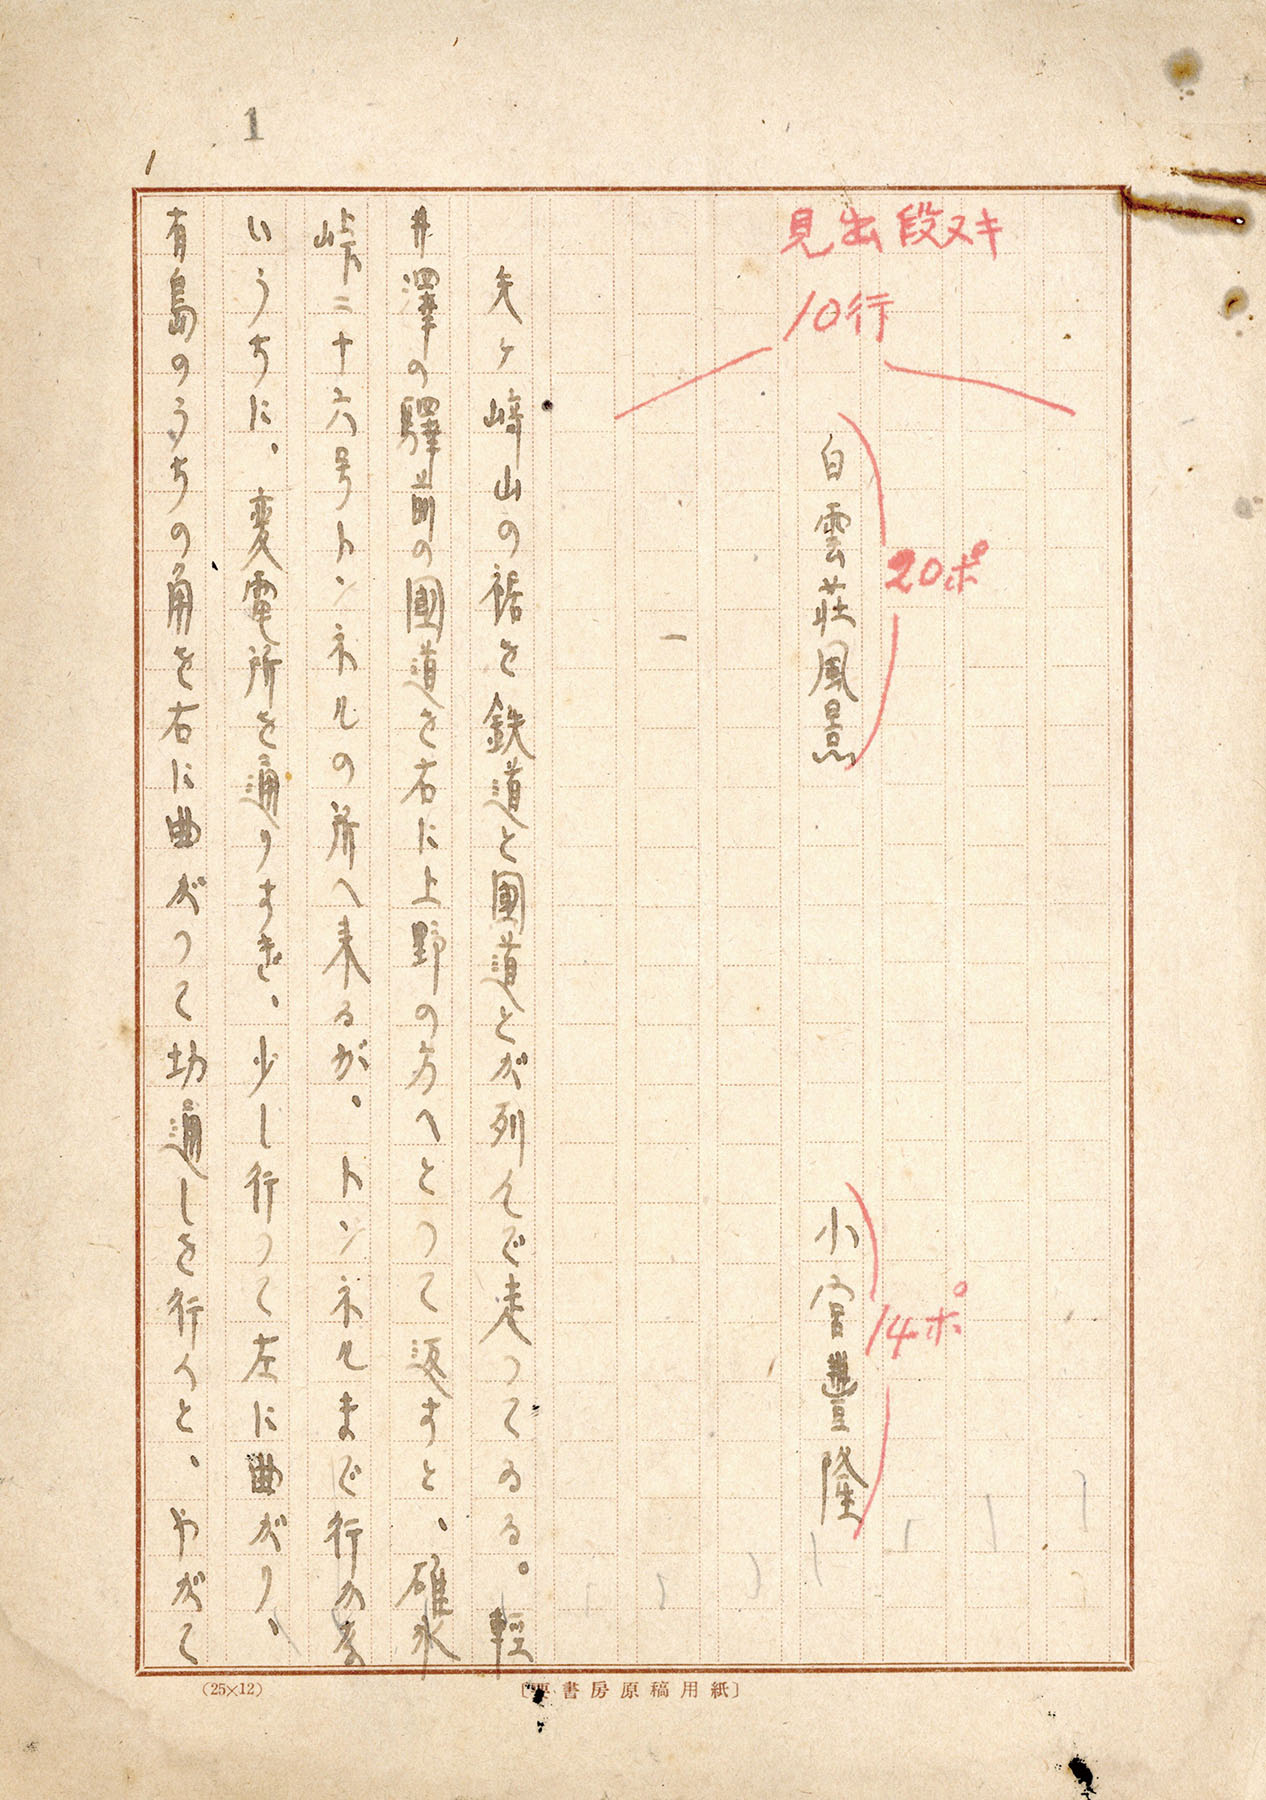 1
見出段ヌキ
10行
白雲荘風景
20ポ
小宮豊隆
14ポ
一
矢ケ崎山の裾を鉄道と國道とが列んで走つてゐる。輕
井澤の驛前の國道を右に上野の方へとつて返すと、碓氷
峠二十六号トンネルの所へ来るが、トンネルまで行かな
いうちに、変電所を通りすぎ、少し行つて左に曲がり、
有島のうちの角を右に曲がつて切通しを行くと、やがて
(25×12)
書房原稿用紙〕